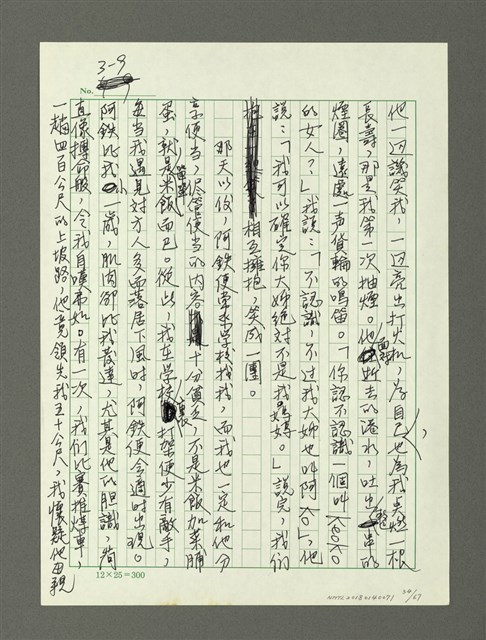 3-9
No.
他一边譏笑我,一边亮出打火机,为自己、也为我点燃一根
長壽,那是我第一次抽煙。他面對所去的淡水,吐出整串的
煙圈,遠處一声貨輪的鳴笛。「你認不認識一個叫
的女人?」我説:「不認識,不过我大姊也叫阿 。」他
説:「我可以確定你大姊絕对不是我媽媽。」説完,我们
相互擁抱,笑成一團。
那天以後,阿鉄便常來学校找我,而我也一定和他分
享便当,儘管便当的內容十分貧乏,不是米飯加菜脯
蛋,就是單單米飯而已。從此,我在学校裏打架便少有敵手,
每当我遇見对方人多而落居下風时,阿鉄便会適时出現。
阿鉄比我小一歲,肌肉卻比我發達,尤其是他的胆識,簡
直像搏命般,令我自嘆弗如。有一次,我们比賽推煤車,
一趟四百公尺的上坡路,他竟領先我五十公尺,我懷疑他母親
12×25=300
34/67